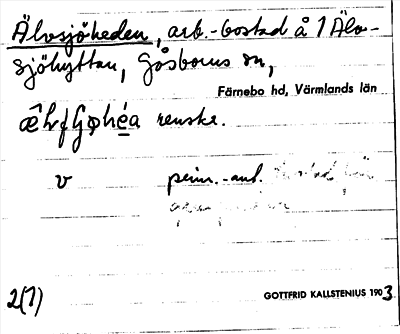 Älvsjöheden, arb.-bostad å 1 Älv-
sjöhyttan, Gåsborns sn,
Färnebo hd, Värmlands län
renske.
v pers.-ant.
2(7) GOTTFRID KALLSTENIUS 1903